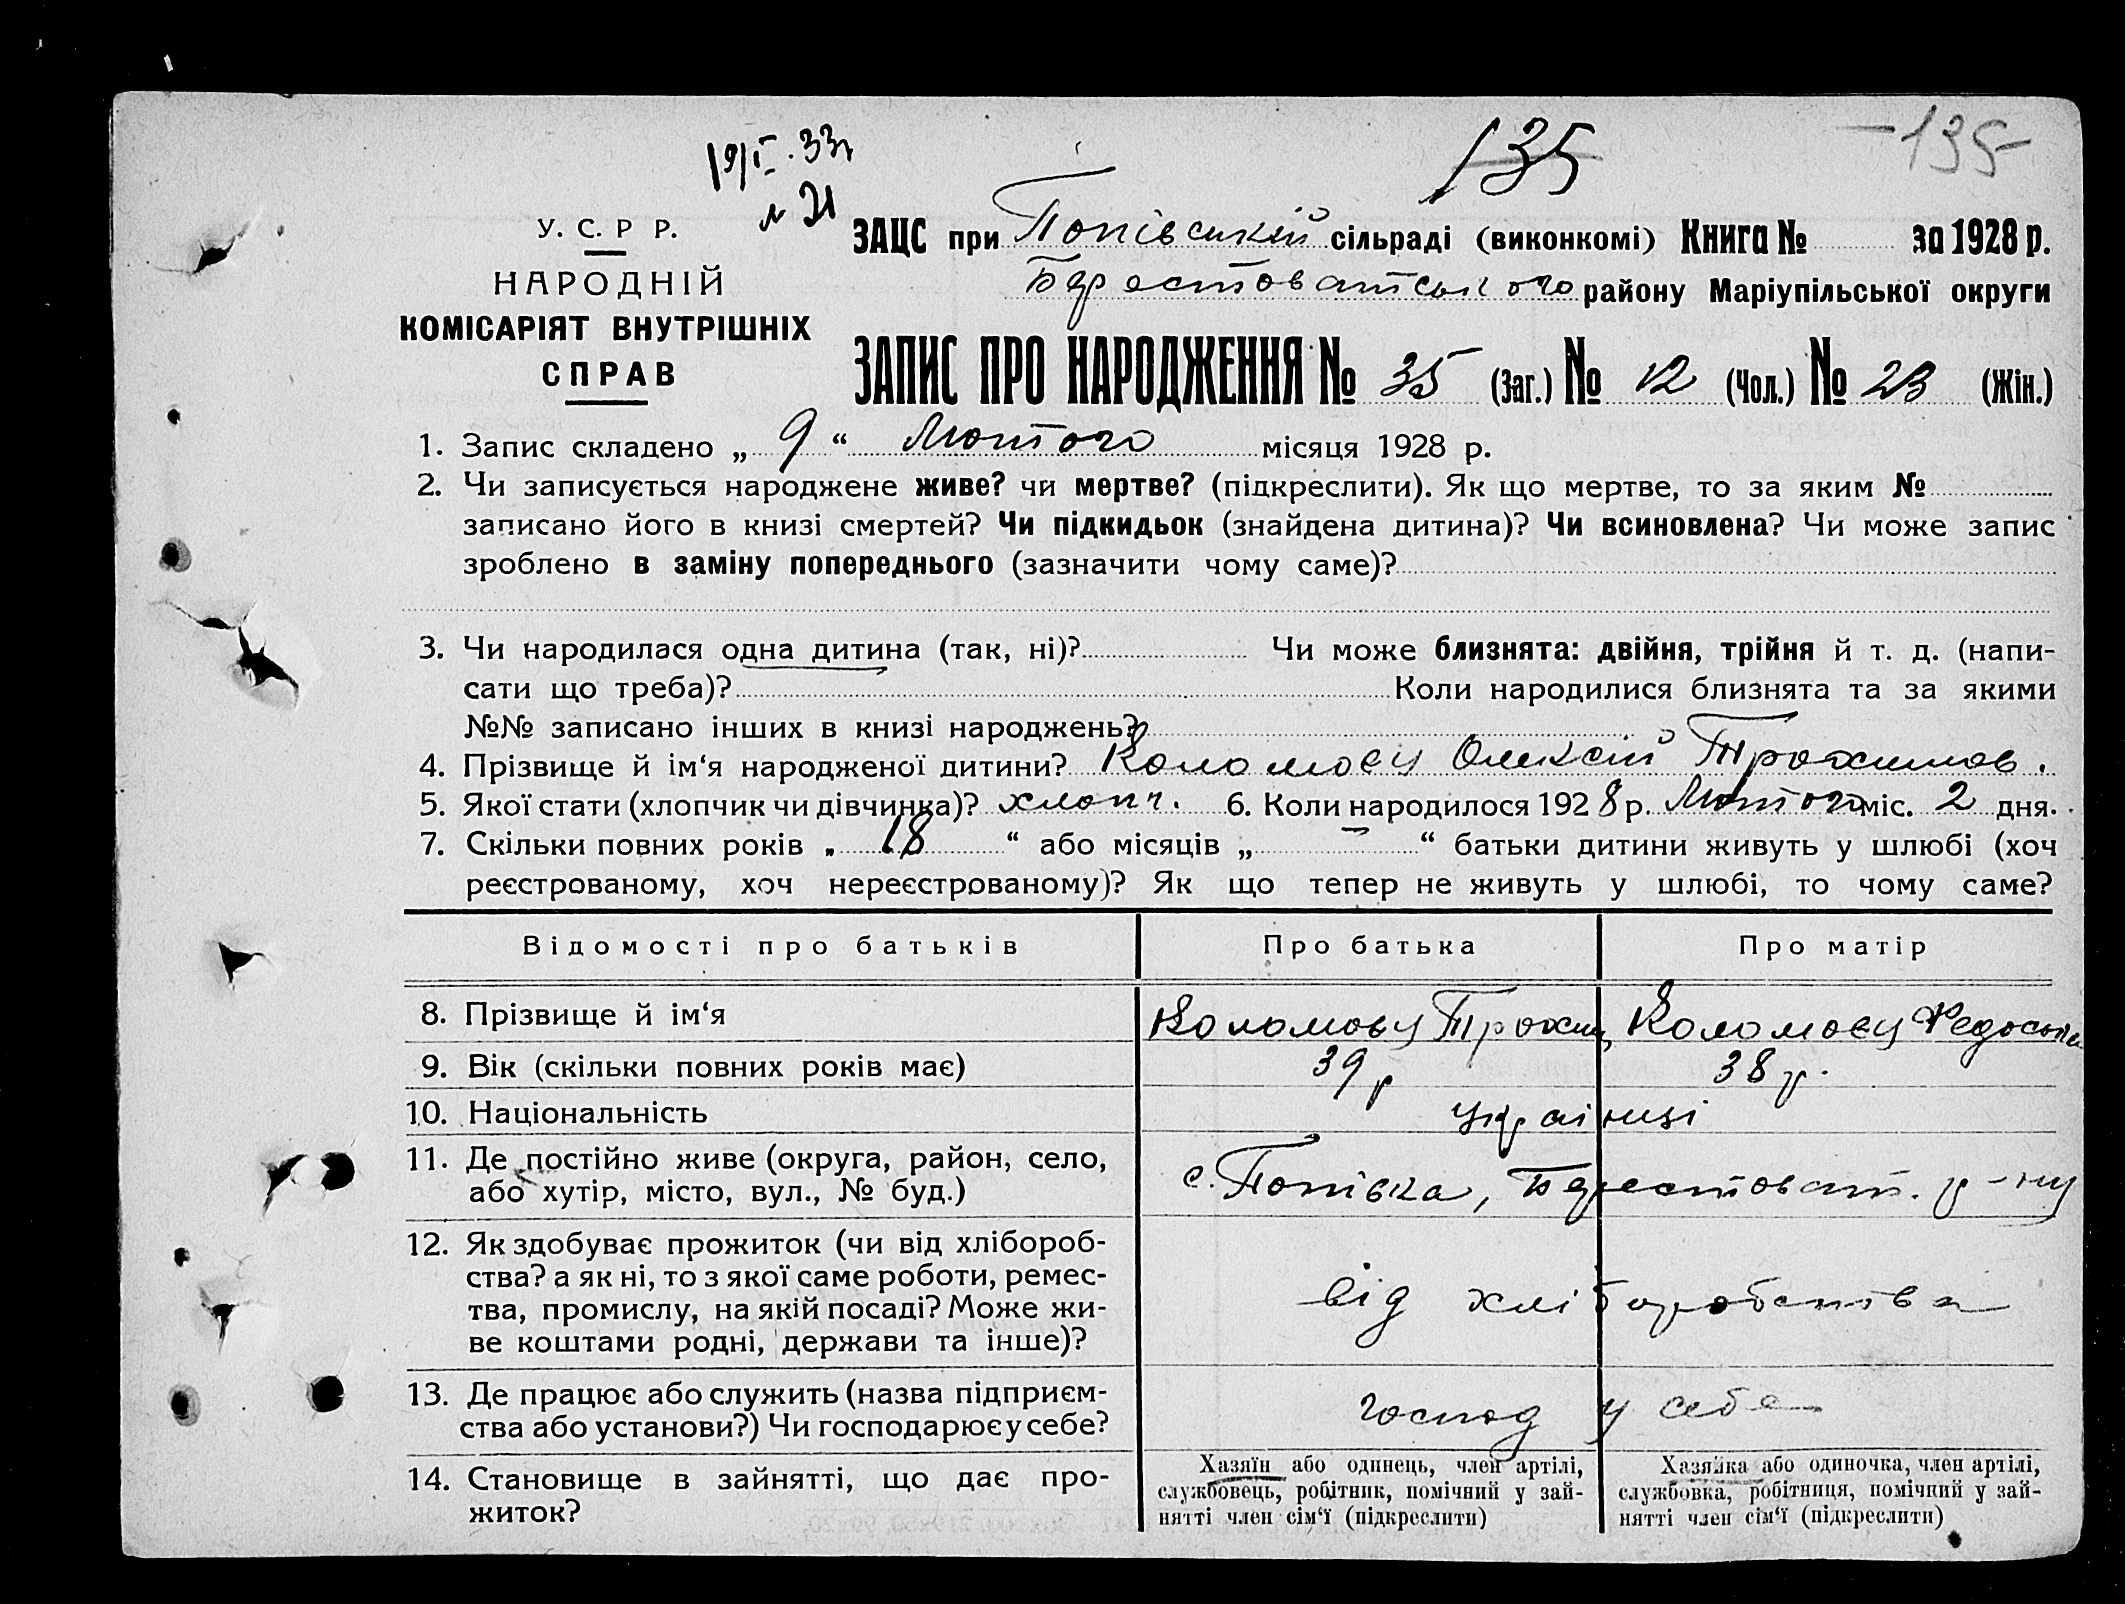 135
-135-
19/I.33р
№ 21
У. С. Р. Р.
НАРОДНІЙ
КОМІСАРІЯТ ВНУТРІШНІХ
СПРАВ
ЗАЦС при Попівський сільраді (виконкомі) Книга № за 1928 р.
Бересто​ватського району Маріупільської округи
ЗАПИС ПРО НАРОДЖЕННЯ № 35 (Заг.) № 12 (Чол.) № 23 (Жін.)
1. Запис складено „ 9 “ Лютого місяця 1928 р.
2. Чи записується народжене живе? чи мертве? (підкреслити). Як що мертве, то за яким №
записано його в книзі смертей? Чи підкидьок (знайдена дитина)? Чи всиновлена? Чи може запис
зроблено в заміну попереднього (зазначити чому саме)?
3. Чи народилася одна дитина (так, ні)? Чи може близнята: двійня, трійня й т. д. (напи-
сати що треба)? Коли народилися близнята та за якими
№№ записано інших в книзі народжень?
4. Прізвище й ім‘я народженої дитини? Коломоєц Олексій Трохимов.
5. Якої стати (хлопчик чи дівчинка)? хлопч. 6. Коли народилося 1928 р. Лютого міс. 2 дня.
7. Скільки повних років „ 18 “ або місяців „ — “ батьки дитини живуть у шлюбі (хоч
реєстрованому, хоч нереєстрованому)? Як що тепер не живуть у шлюбі, то чому саме?
Відомості про батьків Про батька Про матір
8. Прізвище й ім‘я Коломоєц Трохим Коломоєц Федосья
9. Вік (скільки повних років має) 39 р 38 р.
10. Національність українці
11. Де постійно живе (округа, район, село,
або хутір, місто, вул., № буд.) с. Попівка, Берестоват. р-ну
12. Як здобуває прожиток (чи від хлібороб-
ства? а як ні, то з якої саме роботи, ремес-
тва, промислу, на якій посаді? Може жи-
ве коштами родні, держави та інше)? від хліборобства
13. Де працює або служить (назва підприєм-
ства або установи?) Чи господарює у себе? господ у себе
14. Становище в зайнятті, що дає про-
житок?
Хазяїн або одинець, член артілі,
службовець, робітник, помічний у зай-
нятті член сім‘ї (підкреслити)
Хазяйка або одиночка, член артілі,
службовка, робітниця, помічний у зай-
нятті член сім‘ї (підкреслити)